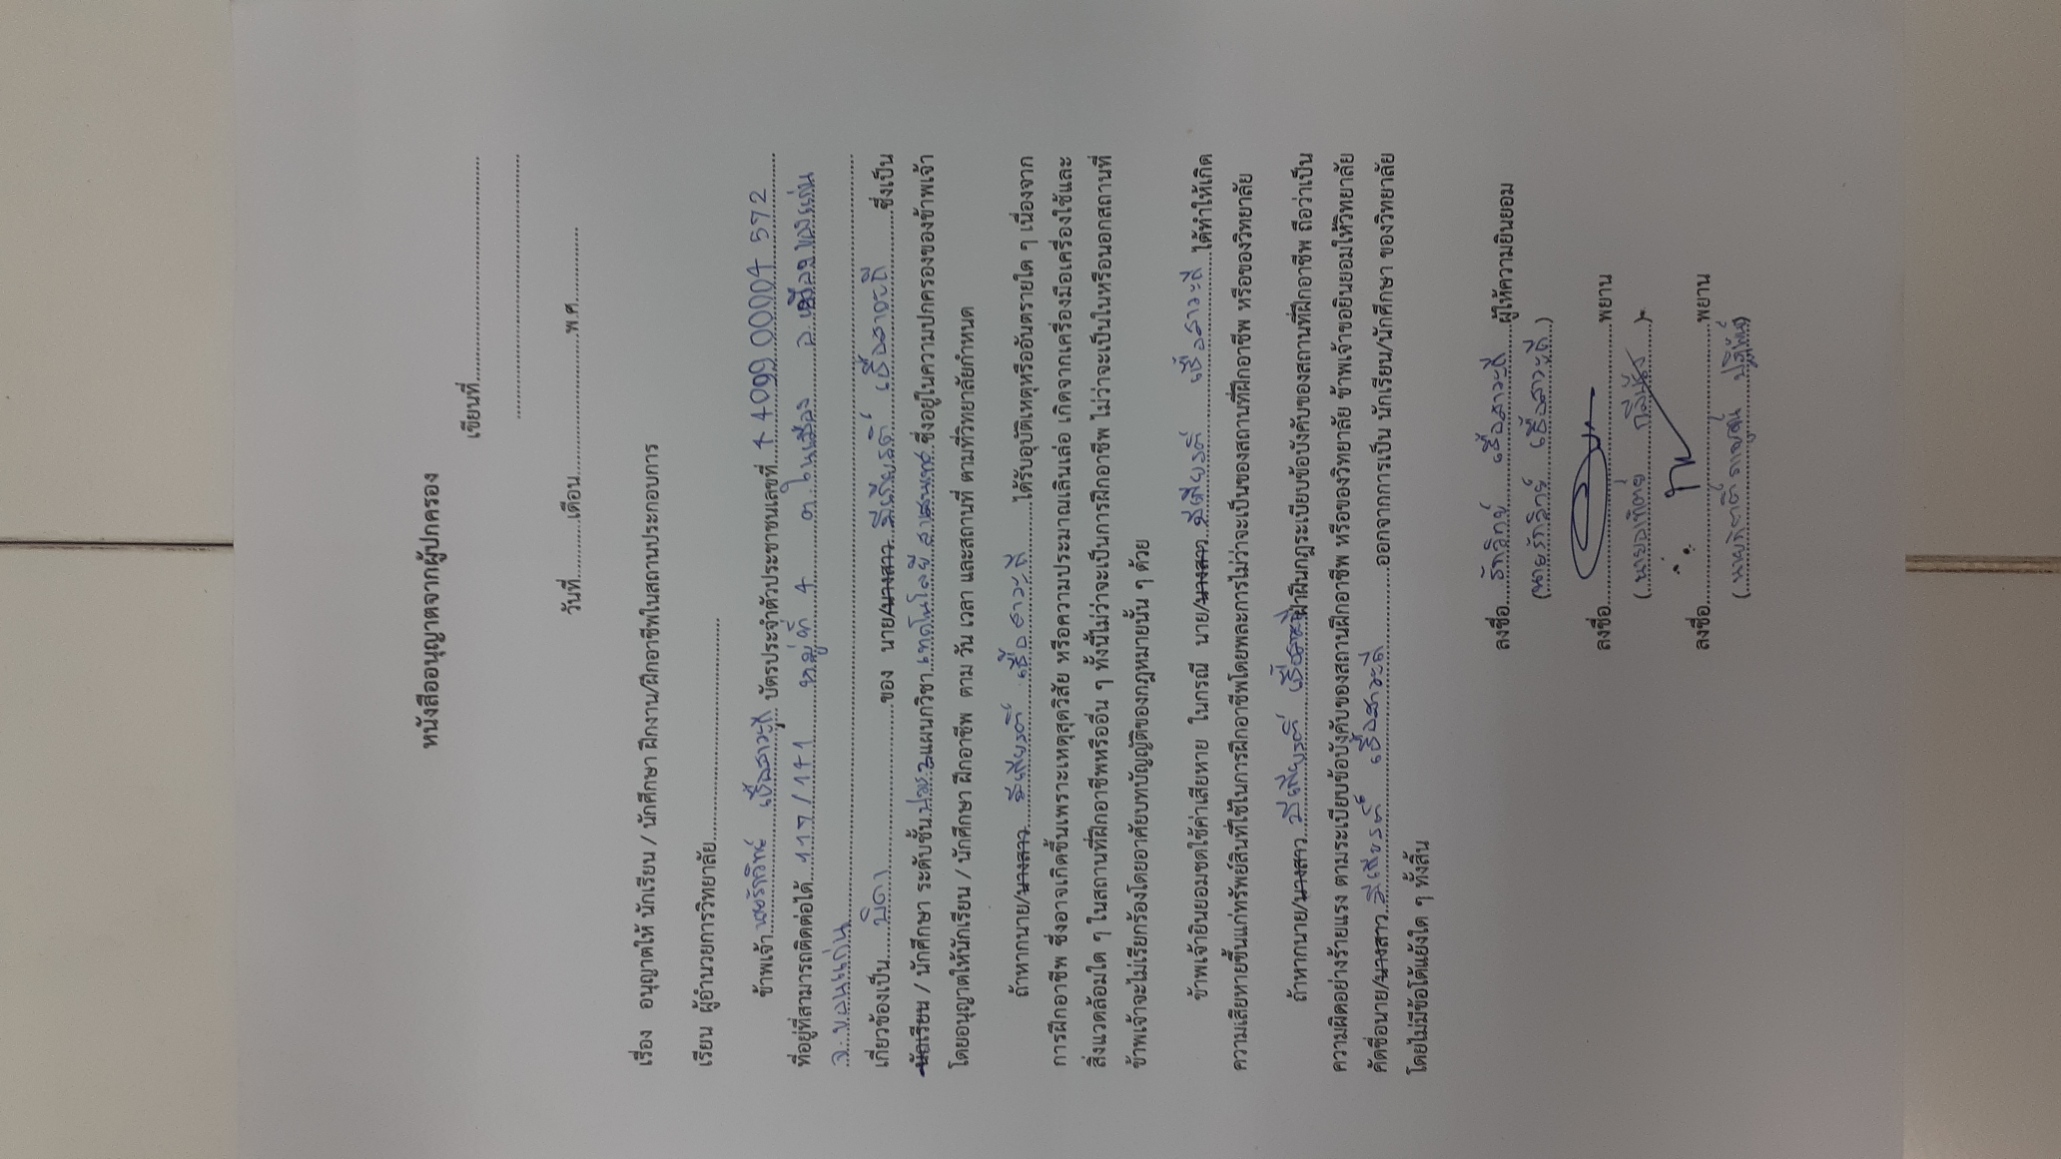 หนังสืออนุญาตจากผู้ปกครอง
เขียนที่
วันที่............เดือน....................พ.ศ.............
เรื่อง อนุญาตให้ นักเรียน / นักศึกษา ฝึกงาน/ฝึกอาชีพในสถานประกอบการ
เรียน ผู้อำนวยการวิทยาลัย
ข้าพเจ้า นายรักวิทย์ เชื้อสาวะถี บัตรประจำตัวประชาชนเลขที่ 4 4099 00004 572
ที่อยู่ที่สามารถติดต่อได้ 117/141 หมู่ที่ 4 ต.ในเมือง อ.เมืองขอนแก่น
จ.ขอนแก่น
เกี่ยวข้องเป็น บิดา ของ นาย/นางสาว มีเกียรติ์ เชื้อสาวะถี ซึ่งเป็น
นักเรียน / นักศึกษา ระดับชั้น ปวส.2 แผนกวิชา เทคโนโลยีสารสนเทศ ซึ่งอยู่ในความปกครองของข้าพเจ้า
โดยอนุญาตให้นักเรียน / นักศึกษา ฝึกอาชีพ ตาม วัน เวลา และสถานที่ ตามที่วิทยาลัยกำหนด
ถ้าหากนาย/นางสาว มีเกียรติ์ เชื้อสาวะถี ได้รับอุบัติเหตุหรืออันตรายใด ๆ เนื่องจาก
การฝึกอาชีพ ซึ่งอาจเกิดขึ้นเพราะเหตุสุดวิสัย หรือความประมาณเลินเล่อ เกิดจากเครื่องมือเครื่องใช้และ
สิ่งแวดล้อมใด ๆ ในสถานที่ฝึกอาชีพหรืออื่น ๆ ทั้งนี้ไม่ว่าจะเป็นการฝึกอาชีพ ไม่ว่าจะเป็นในหรือนอกสถานที่
ข้าพเจ้าจะไม่เรียกร้องโดยอาศัยบทบัญญัติของกฎหมายนั้น ๆ ด้วย
ข้าพเจ้ายินยอมชดใช้ค่าเสียหาย ในกรณี นาย/นางสาว มีเกียรติ์ เชื้อสาวะถี ได้ทำให้เกิด
ความเสียหายขึ้นแก่ทรัพย์สินที่ใช้ในการฝึกอาชีพโดยพละการไม่ว่าจะเป็นของสถานที่ฝึกอาชีพ หรือของวิทยาลัย
ถ้าหากนาย/นางสาว มีเกียรติ์ เชื้อสาวะถี ฝ่าฝืนกฎระเบียบข้อบังคับของสถานที่ฝึกอาชีพ ถือว่าเป็น
ความผิดอย่างร้ายแรง ตามระเบียบข้อบังคับของสถานฝึกอาชีพ หรือของวิทยาลัย ข้าพเจ้าขอยินยอมให้วิทยาลัย
คัดชื่อนาย/นางสาว มีเกียรติ์ เชื้อสาวะถี ออกจากการเป็น นักเรียน/นักศึกษา ของวิทยาลัย
โดยไม่มีข้อโต้แย้งใด ๆ ทั้งสิ้น
ลงชื่อ รักวิทย์ เชื้อสาวะถี ผู้ให้ความยินยอม
(นายรักวิทย์ เชื้อสาวะถี)
ลงชื่อ..............................พยาน
(นายอาทิตย์)
ลงชื่อ..............................พยาน